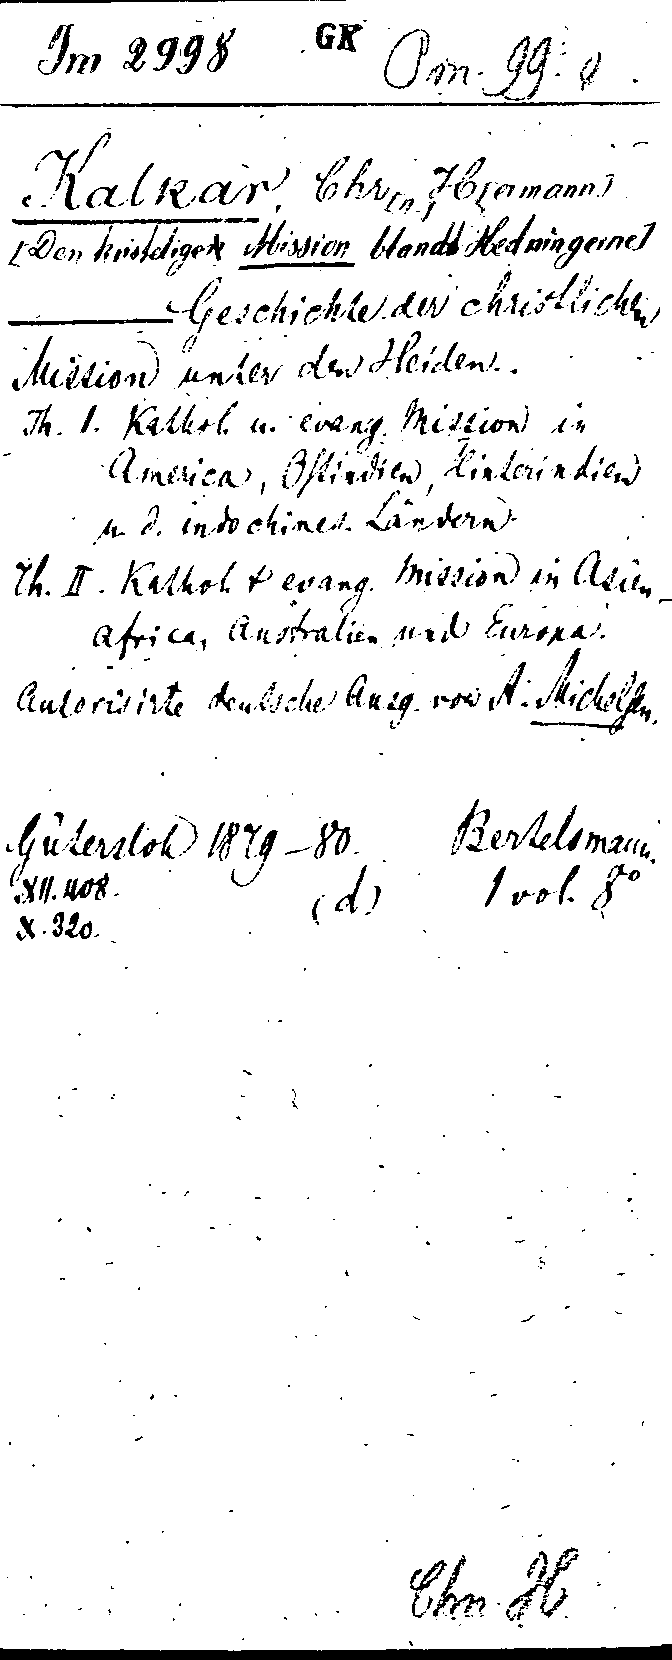 Im 2998 GK Pm. 99. 8.
Kalkar, Chr[n] H[ermann]
[Den kristelige Mission blandt Hedningerne]
Geschichte der christlichen
Mission unter den Heiden.
Th. I. Kathol. u. evang. Mission in
America, Ostindien, Hinterindien
u. d. indochines. Ländern
Th. II. Kathol. & evang. Mission in Asien
Africa, Australien und Europa.
Autorisirte deutsche Ausg. von A. Michelsen.
Gütersloh 1879-80. Bertelsmann.
XII. 408. (d) 1 vol. 8°
X. 320.
Chn. H.